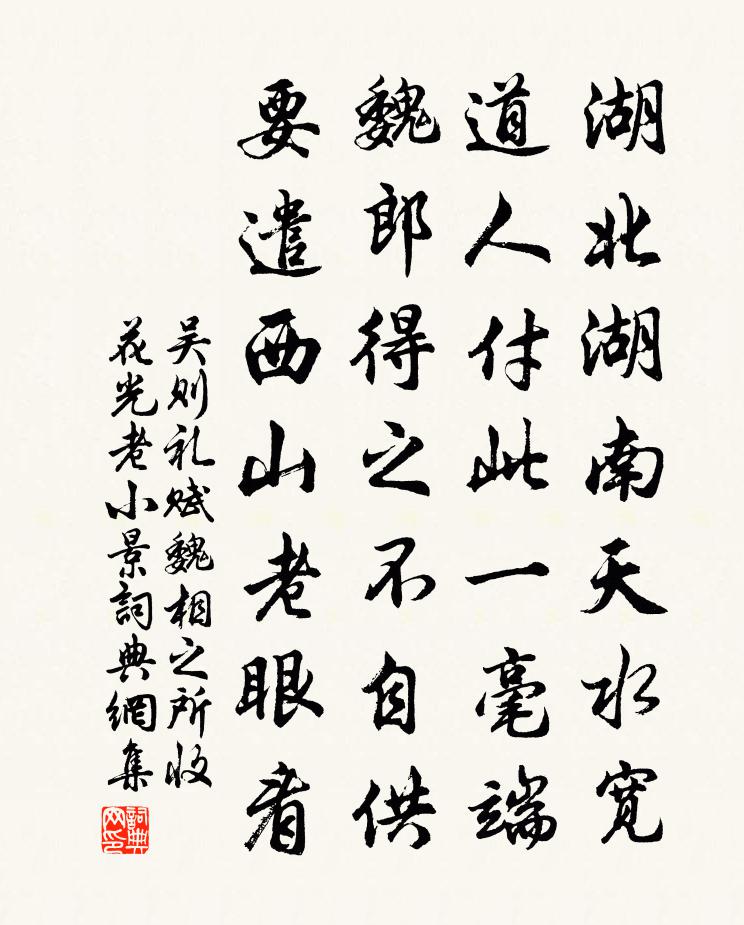 湖北湖南天水寬
道人付此一毫端
魏郎得之不自供
要遣西山老眼看
吴則礼赋魏相之所收
花光老小景詞典網集
詞典網印